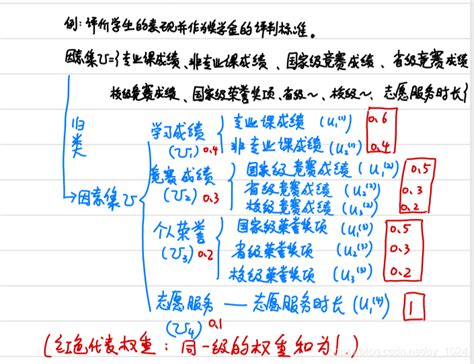 例：评价学生的表现并作为奖学金的评判标准。
因素集U={专业课成绩、非专业课成绩、国家级竞赛成绩、省级竞赛成绩
校级竞赛成绩、国家级荣誉奖项、省级～、校级～、志愿服务时长}
归类
因素集U
学习成绩 (U₁) 0.4
专业课成绩 (u₁⁽¹⁾) 0.6
非专业课成绩 (u₂⁽¹⁾) 0.4
竞赛成绩 (U₂) 0.3
国家级竞赛成绩 (u₁⁽²⁾) 0.5
省级竞赛成绩 (u₂⁽²⁾) 0.3
校级竞赛成绩 (u₃⁽²⁾) 0.2
个人荣誉 (U₃) 0.2
国家级荣誉奖项 (u₁⁽³⁾) 0.5
省级荣誉奖项 (u₂⁽³⁾) 0.3
校级荣誉奖项 (u₃⁽³⁾) 0.2
志愿服务 (U₄) 0.1
志愿服务时长 (u₁⁽⁴⁾) 1
(红色代表权重：同一级的权重和为1.)